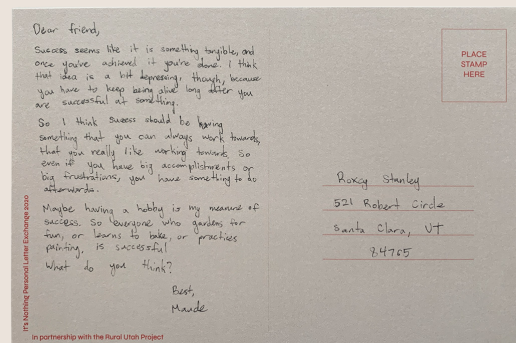 Dear friend,
Success seems like it is something tangible, and
once you've achieved it you're done. I think
that idea is a bit depressing, though, because
you have to keep being alive long after you
are successful at something.
So I think success should be having
something that you can always work towards,
that you really like working towards. So
even if you have big accomplishments or
big frustrations, you have something to do
afterwards.
Maybe having a hobby is my measure of
success. So everyone who gardens for
fun, or learns to bake, or practices
painting, is successful!
What do you think?
Best,
Maude
PLACE
STAMP
HERE
Roxcy Stanley
521 Robert Circle
Santa Clara, UT
84765
It's Nothing Personal Letter Exchange 2020
In partnership with the Rural Utah Project